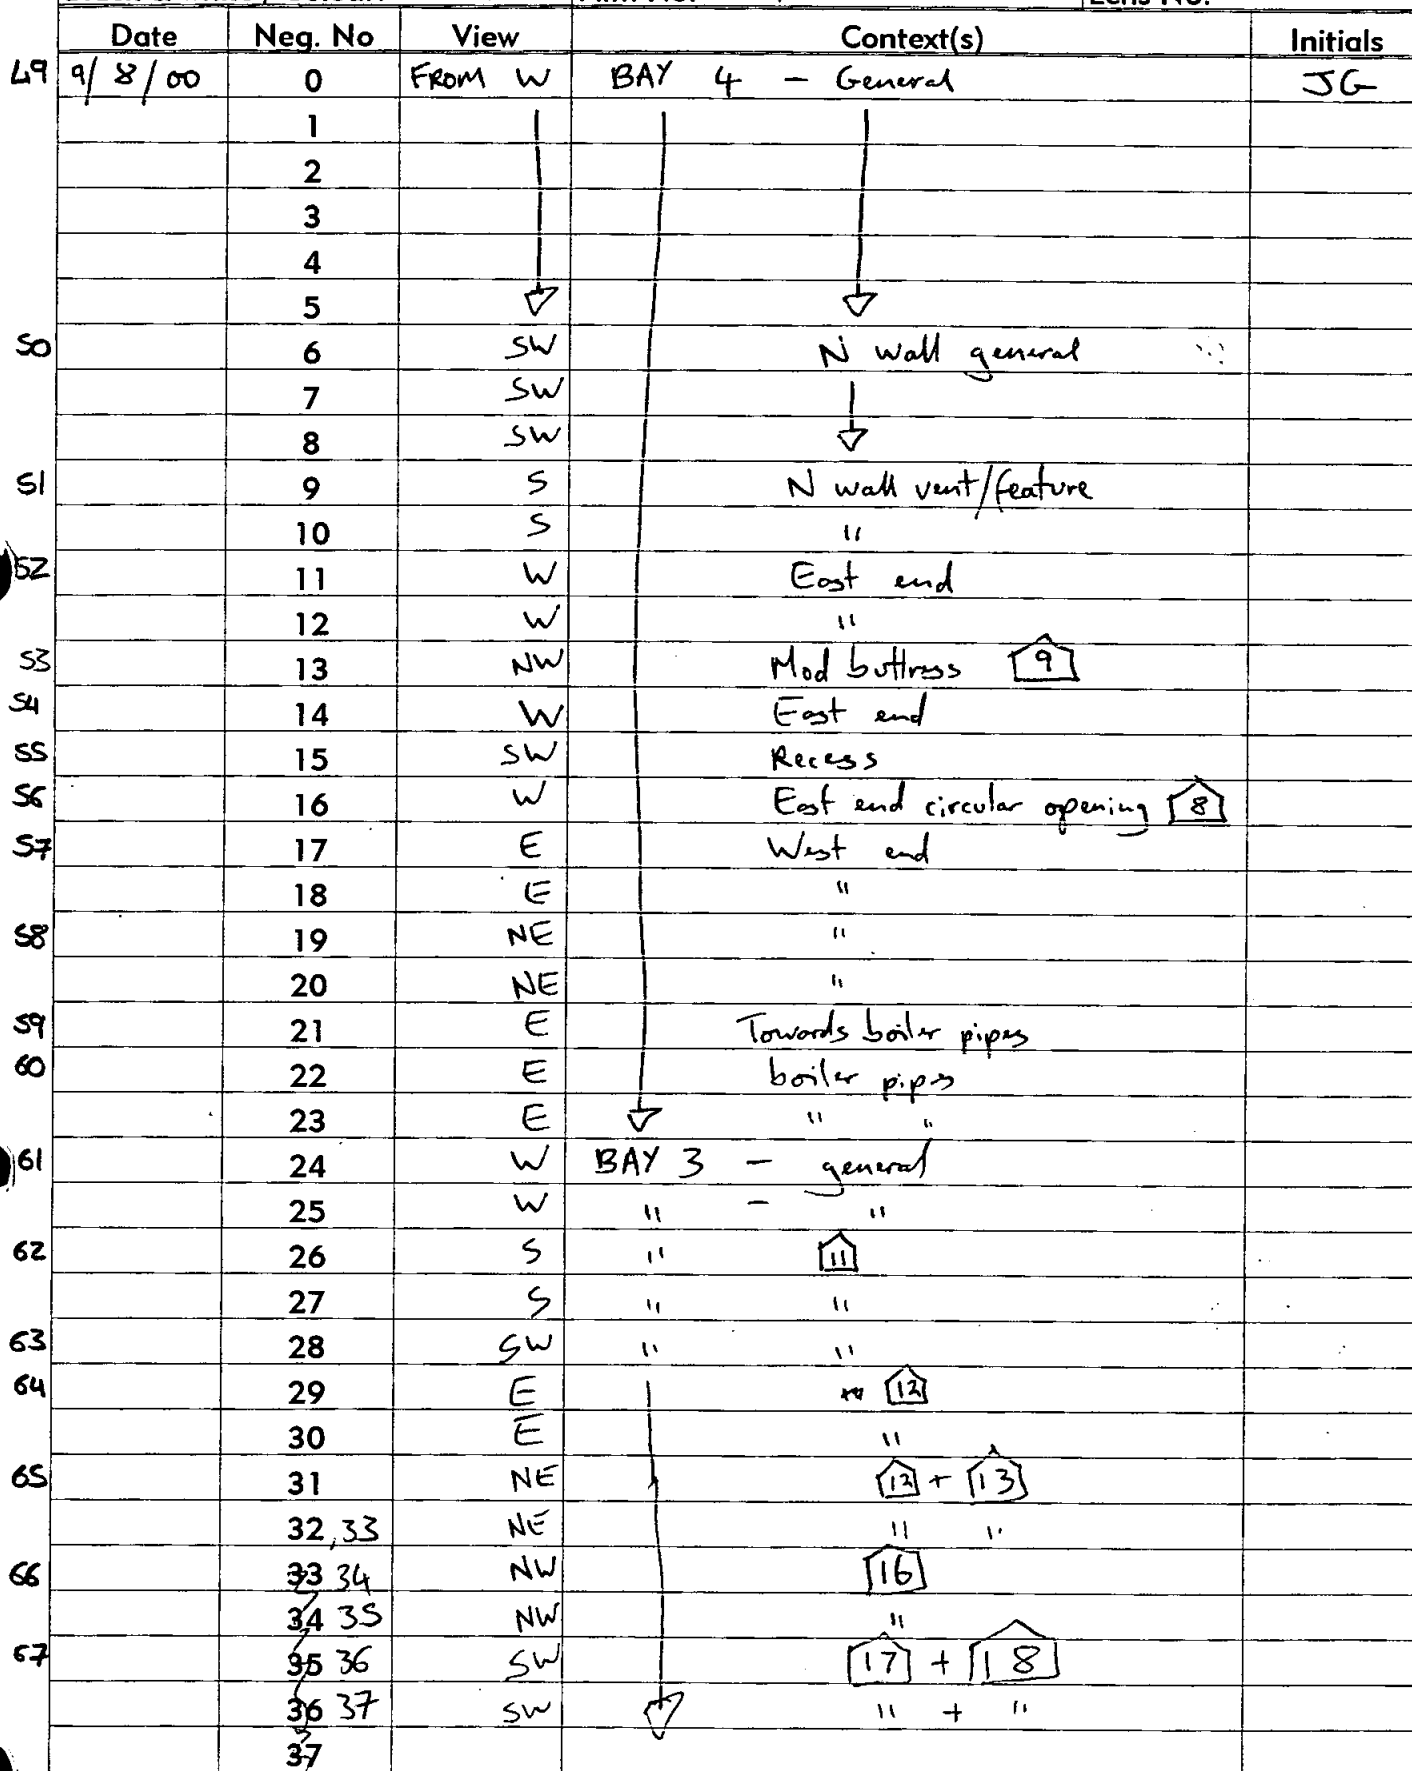 Date Neg. No View Context(s) Initials
49 9/8/00 0 FROM W BAY 4 - General JG
1
2
3
4
5
50 6 SW N wall general
7 SW
8 SW
51 9 S N wall vent/feature
10 S "
52 11 W East end
12 W "
53 13 NW Mod buttress 9
54 14 W East end
55 15 SW Recess
56 16 W East end circular opening 8
57 17 E West end
18 E "
58 19 NE "
20 NE "
59 21 E Towards boiler pipes
60 22 E boiler pipes
23 E " "
61 24 W BAY 3 - general
25 W " - "
62 26 S " 11
27 S " "
63 28 SW " "
64 29 E 12
30 E "
65 31 NE 12 + 13
32,33 NE " "
66 33 34 NW 16
34 35 NW "
67 35 36 SW 17 + 18
36 37 SW " + "
37